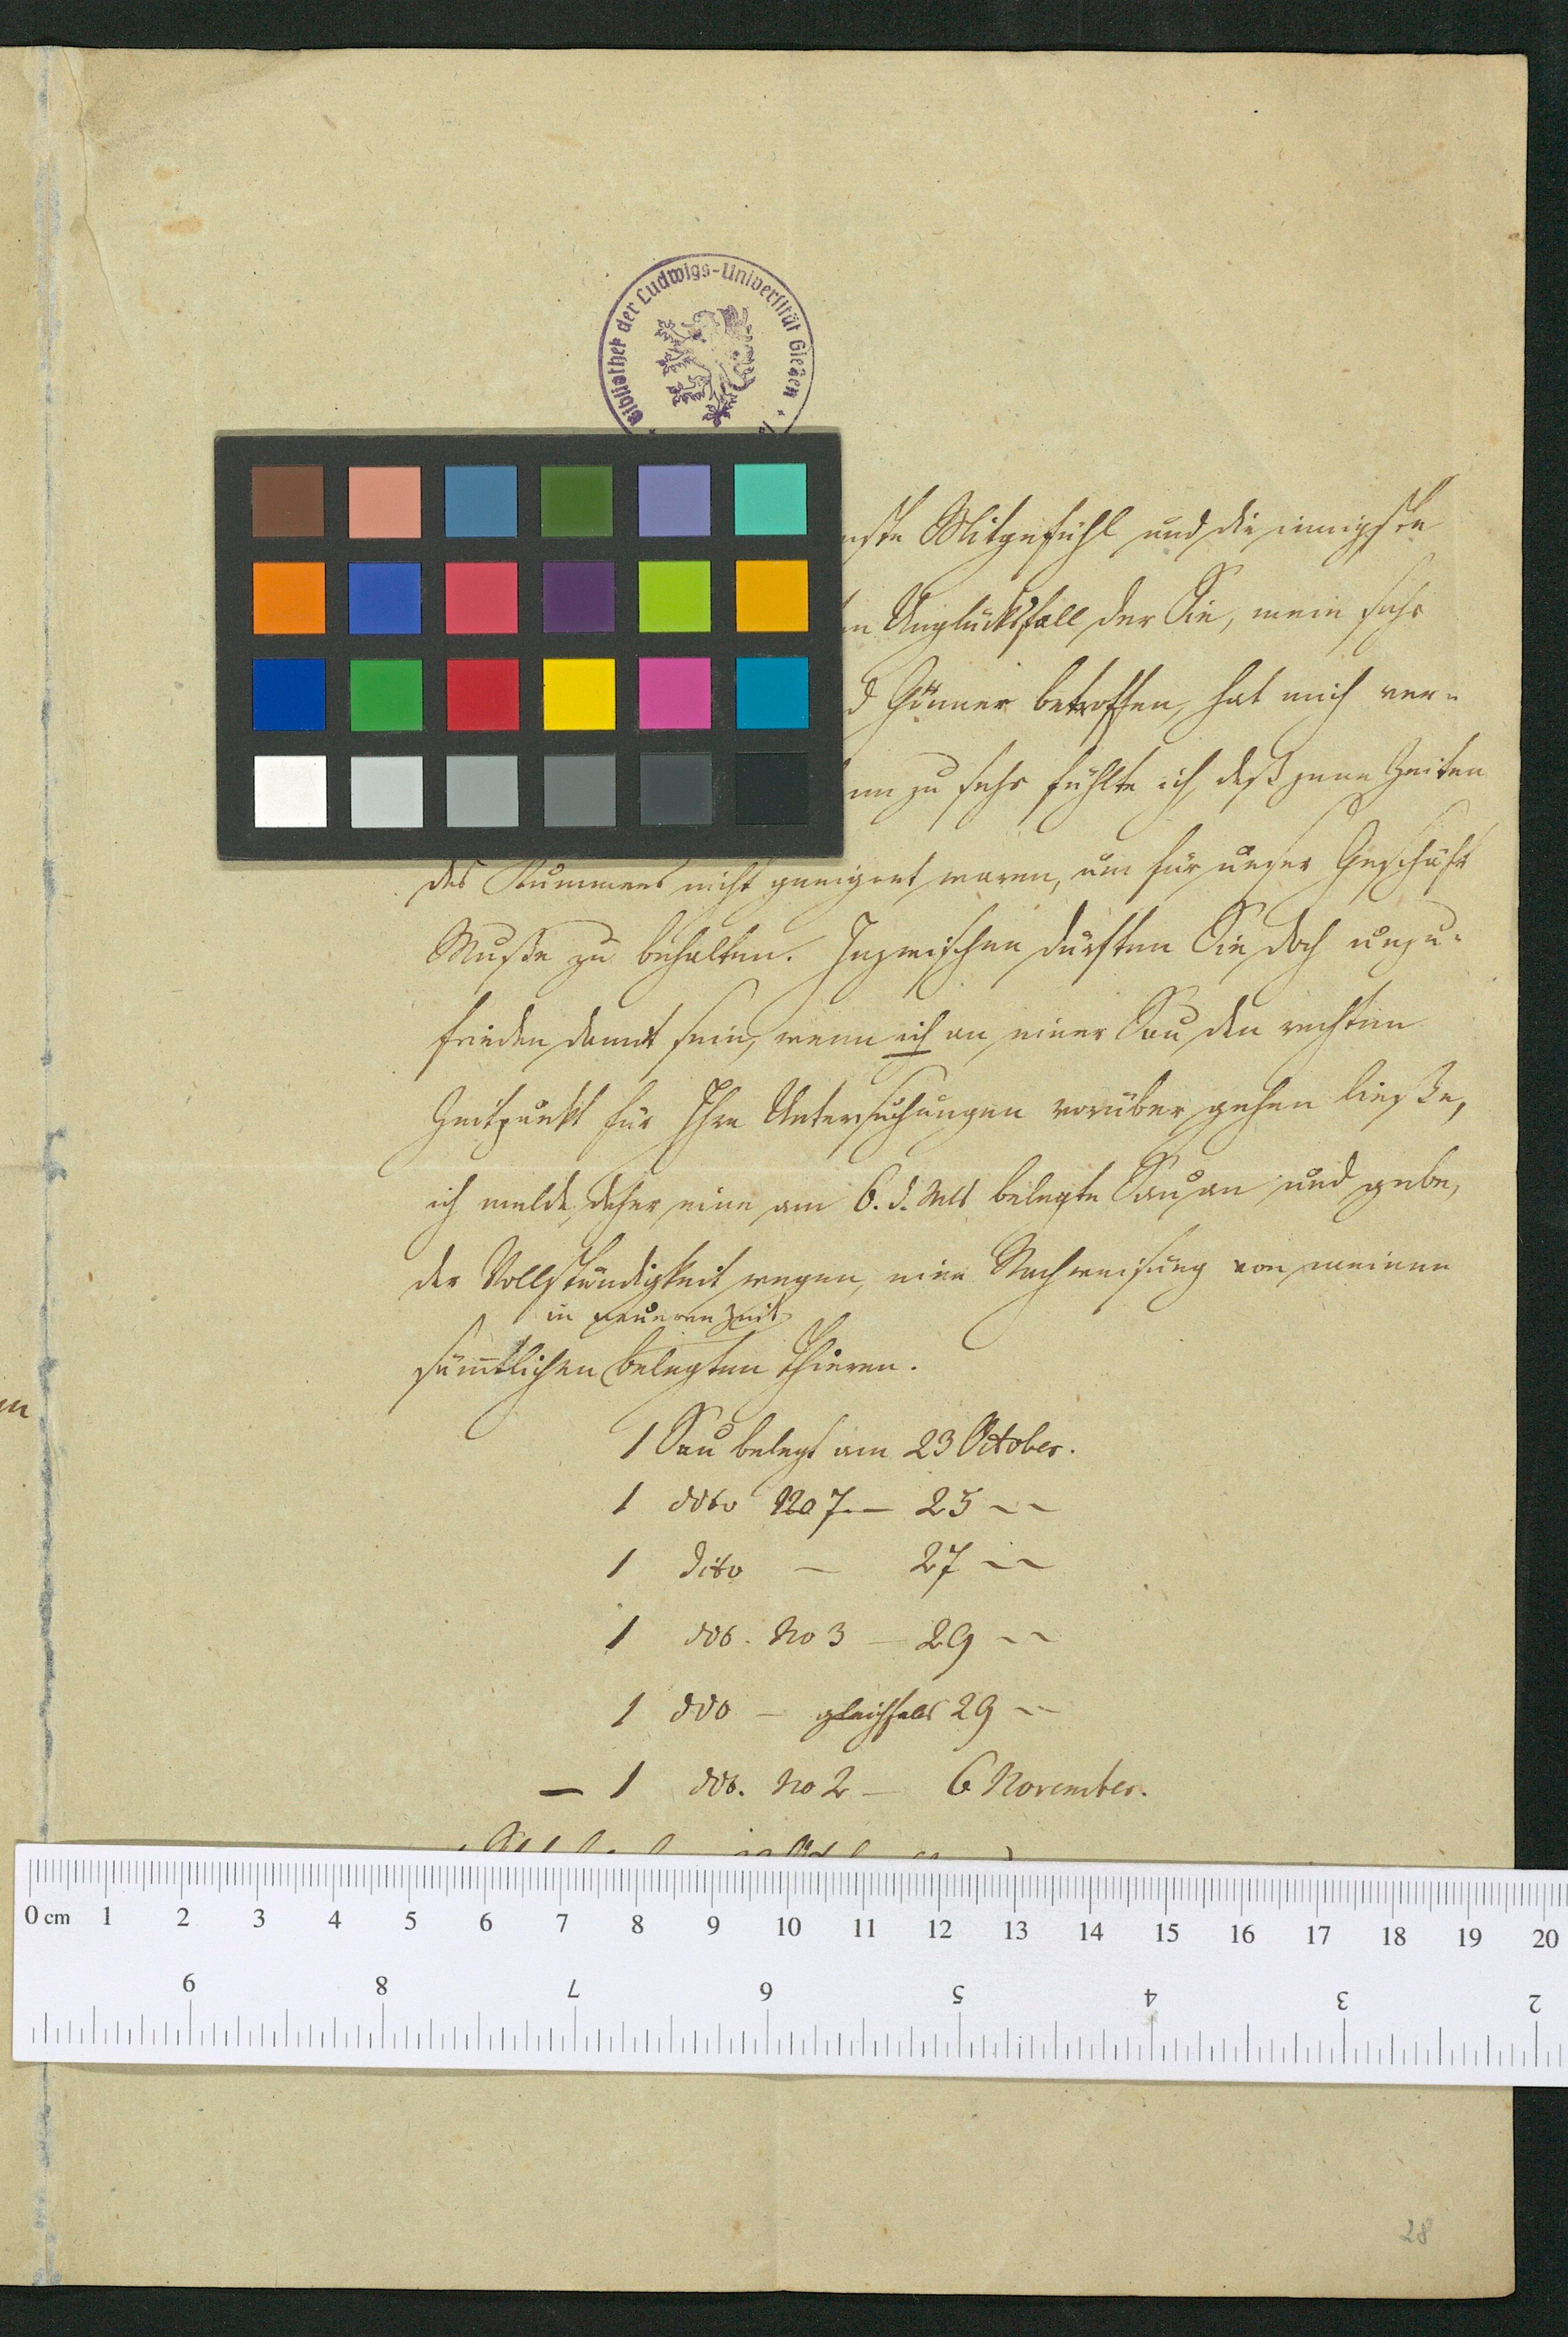 Bibliothek der Ludwigs-Universität Gießen
Mitgefühl und die innigste
Unglücksfall der Sie, mein sehr
Gönner betroffen, hat mich ver-
zu sehr fühlte ich, daß jene Zeiten
des Kummers nicht geeignet waren, um für unser Geschäft
Muße zu behalten. Inzwischen dürften Sie doch unzu-
frieden damit sein, wenn ich an einer Sau den rechten
Zeitpunkt für Ihre Untersuchungen vorüber gehen ließe,
ich melde daher eine am 6. d. Mts belegte Sau an und gebe,
der Vollständigkeit wegen, eine Nachweisung von meinen
in neueren Zeit
sämtlichen belegten Thieren.
1 Sau belegt am 23 October.
1 dito No 7 — 25 ~ ~
1 dito — 27 ~ ~
1 dto. No 3 — 29 ~ ~
1 dto — gleichfals 29 ~ ~
— 1 dto. No 2 — 6 November.
0 cm 1 2 3 4 5 6 7 8 9 10 11 12 13 14 15 16 17 18 19 20
9 8 7 6 5 4 3 2
28